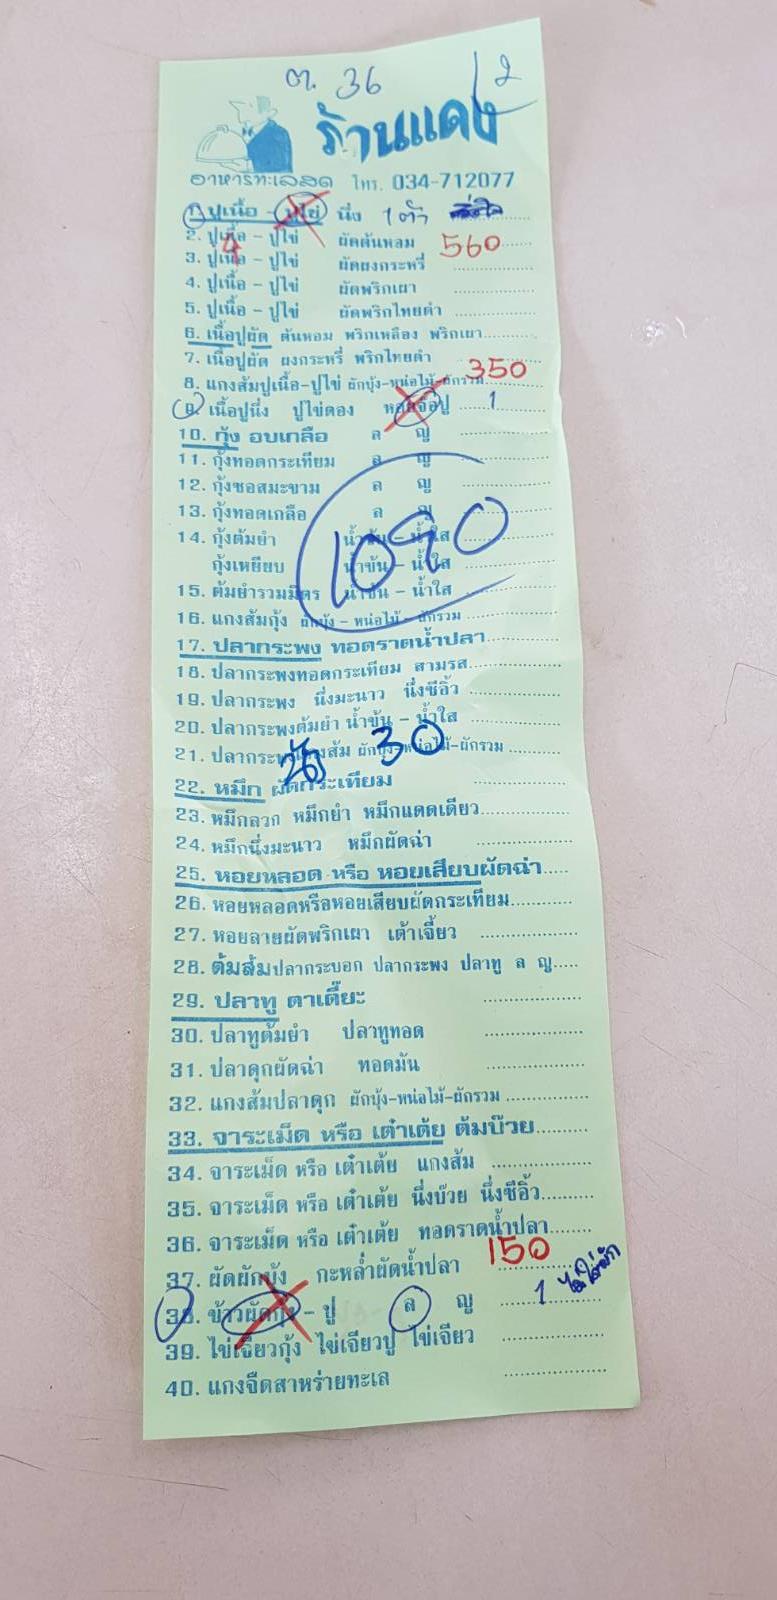 ต. 36 2
ร้านแดง
อาหารทะเลสด โทร. 034-712077
1. ปูเนื้อ - ปูไข่ นึ่ง 1 ตัว
2. ปูเนื้อ - ปูไข่ ผัดต้นหอม 560
3. ปูเนื้อ - ปูไข่ ผัดผงกระหรี่
4. ปูเนื้อ - ปูไข่ ผัดพริกเผา
5. ปูเนื้อ - ปูไข่ ผัดพริกไทยดำ
6. เนื้อปูผัด ต้นหอม พริกเหลือง พริกเผา
7. เนื้อปูผัด ผงกระหรี่ พริกไทยดำ
8. แกงส้มปูเนื้อ-ปูไข่ ผักบุ้ง-หน่อไม้-ผักรวม 350
9. เนื้อปูนึ่ง ปูไข่ดอง หอยจ๊อปู 1
10. กุ้ง อบเกลือ ล ญ
11. กุ้งทอดกระเทียม ล ญ
12. กุ้งซอสมะขาม ล ญ
13. กุ้งทอดเกลือ ล ญ
14. กุ้งต้มยำ น้ำข้น - น้ำใส
กุ้งเหยียบ น้ำข้น - น้ำใส
1090
15. ต้มยำรวมมิตร น้ำข้น - น้ำใส
16. แกงส้มกุ้ง ผักบุ้ง - หน่อไม้ - ผักรวม
17. ปลากระพง ทอดราดน้ำปลา
18. ปลากระพงทอดกระเทียม สามรส
19. ปลากระพง นึ่งมะนาว นึ่งซีอิ้ว
20. ปลากระพงต้มยำ น้ำข้น - น้ำใส
21. ปลากระพงแกงส้ม ผักบุ้ง-หน่อไม้-ผักรวม
30
22. หมึก ผัดกระเทียม
23. หมึกลวก หมึกยำ หมึกแดดเดียว
24. หมึกนึ่งมะนาว หมึกผัดฉ่า
25. หอยหลอด หรือ หอยเสียบผัดฉ่า
26. หอยหลอดหรือหอยเสียบผัดกระเทียม
27. หอยลายผัดพริกเผา เต้าเจี้ยว
28. ต้มส้มปลากระบอก ปลากระพง ปลาทู ล ญ
29. ปลาทู ตาเตี๊ยะ
30. ปลาทูต้มยำ ปลาทูทอด
31. ปลาดุกผัดฉ่า ทอดมัน
32. แกงส้มปลาดุก ผักบุ้ง-หน่อไม้-ผักรวม
33. จาระเม็ด หรือ เต๋าเต้ย ต้มบ๊วย
34. จาระเม็ด หรือ เต๋าเต้ย แกงส้ม
35. จาระเม็ด หรือ เต๋าเต้ย นึ่งบ๊วย นึ่งซีอิ้ว
36. จาระเม็ด หรือ เต๋าเต้ย ทอดราดน้ำปลา
37. ผัดผักบุ้ง กะหล่ำผัดน้ำปลา 150
38. ข้าวผัดกุ้ง - ปู ล ญ 1 ไม่ใส่ผัก
39. ไข่เจียวกุ้ง ไข่เจียวปู ไข่เจียว
40. แกงจืดสาหร่ายทะเล